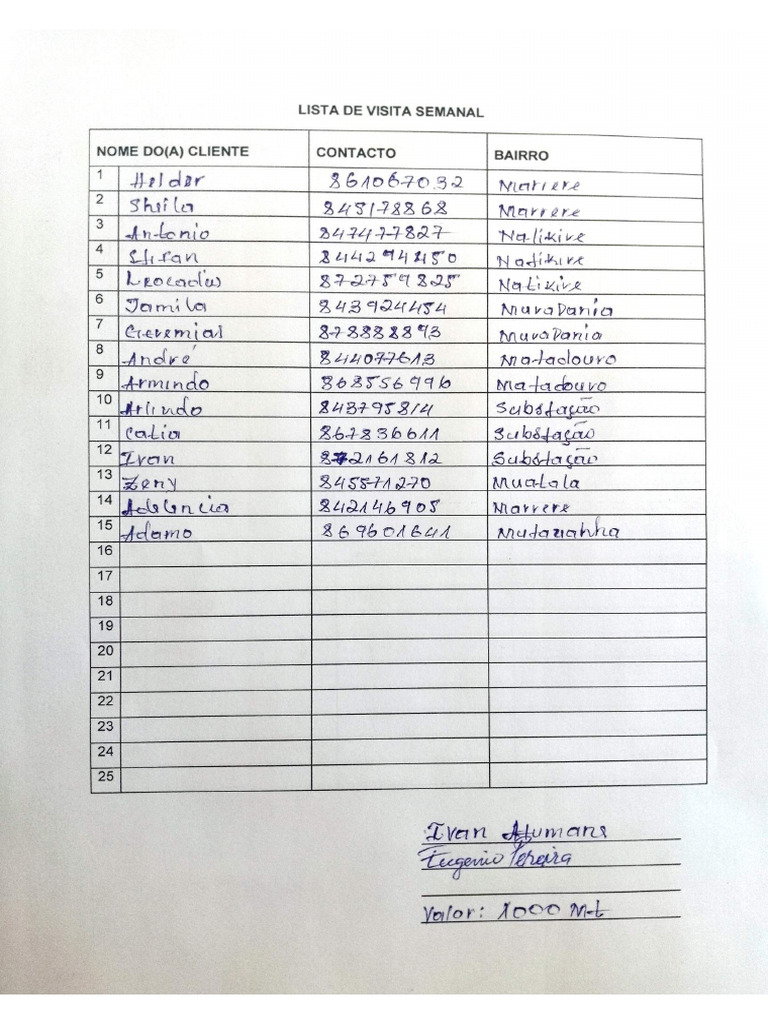 LISTA DE VISITA SEMANAL
NOME DO(A) CLIENTE CONTACTO BAIRRO
1 Helder 861067032 Marrere
2 Sheila 845178868 Marrere
3 Antonio 847477827 Natikire
4 844294450 Natikire
5 Leocadia 872759825 Natikire
6 Jamila 843924454 MuraDania
7 Geremias 878888893 MuraDania
8 André 844077613 Matadouro
9 Armindo 868556996 Matadouro
10 Arlindo 843795814 Substação
11 Catia 867836611 Substação
12 Ivan 872161812 Substação
13 Zeny 845571270 Muatala
14 Adelencia 842146905 Marrere
15 Adamo 869601641
16
17
18
19
20
21
22
23
24
25
Ivan
Eugenio Pereira
Valor: 1000 Mt